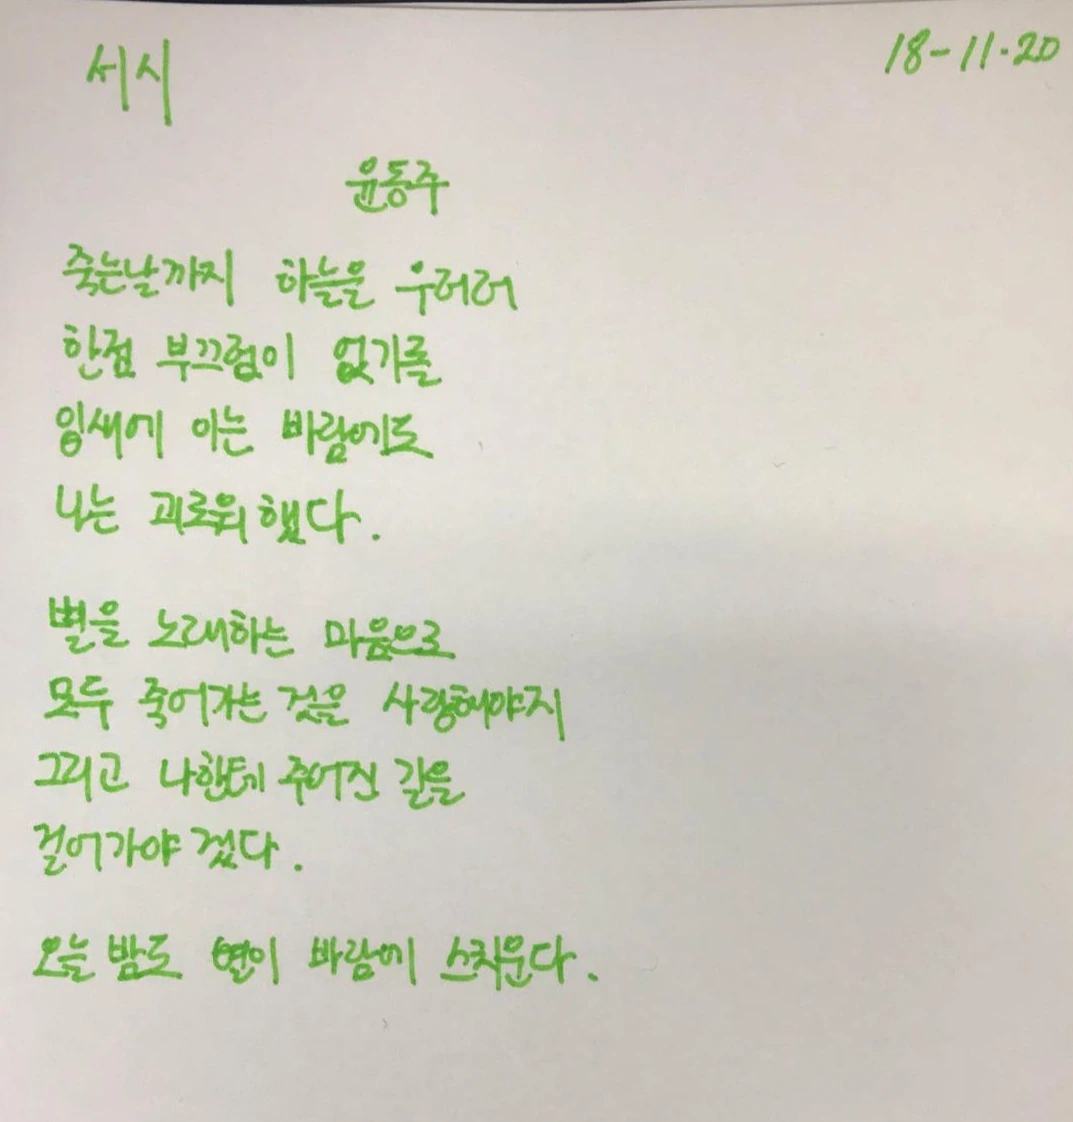 서시
18-11·20
윤동주
죽는날까지 하늘을 우러러
한점 부끄럼이 없기를
잎새에 이는 바람에도
나는 괴로워했다.
별을 노래하는 마음으로
모두 죽어가는 것을 사랑해야지
그리고 나한테 주어진 길을
걸어가야겠다.
오늘밤도 별이 바람에 스치운다.